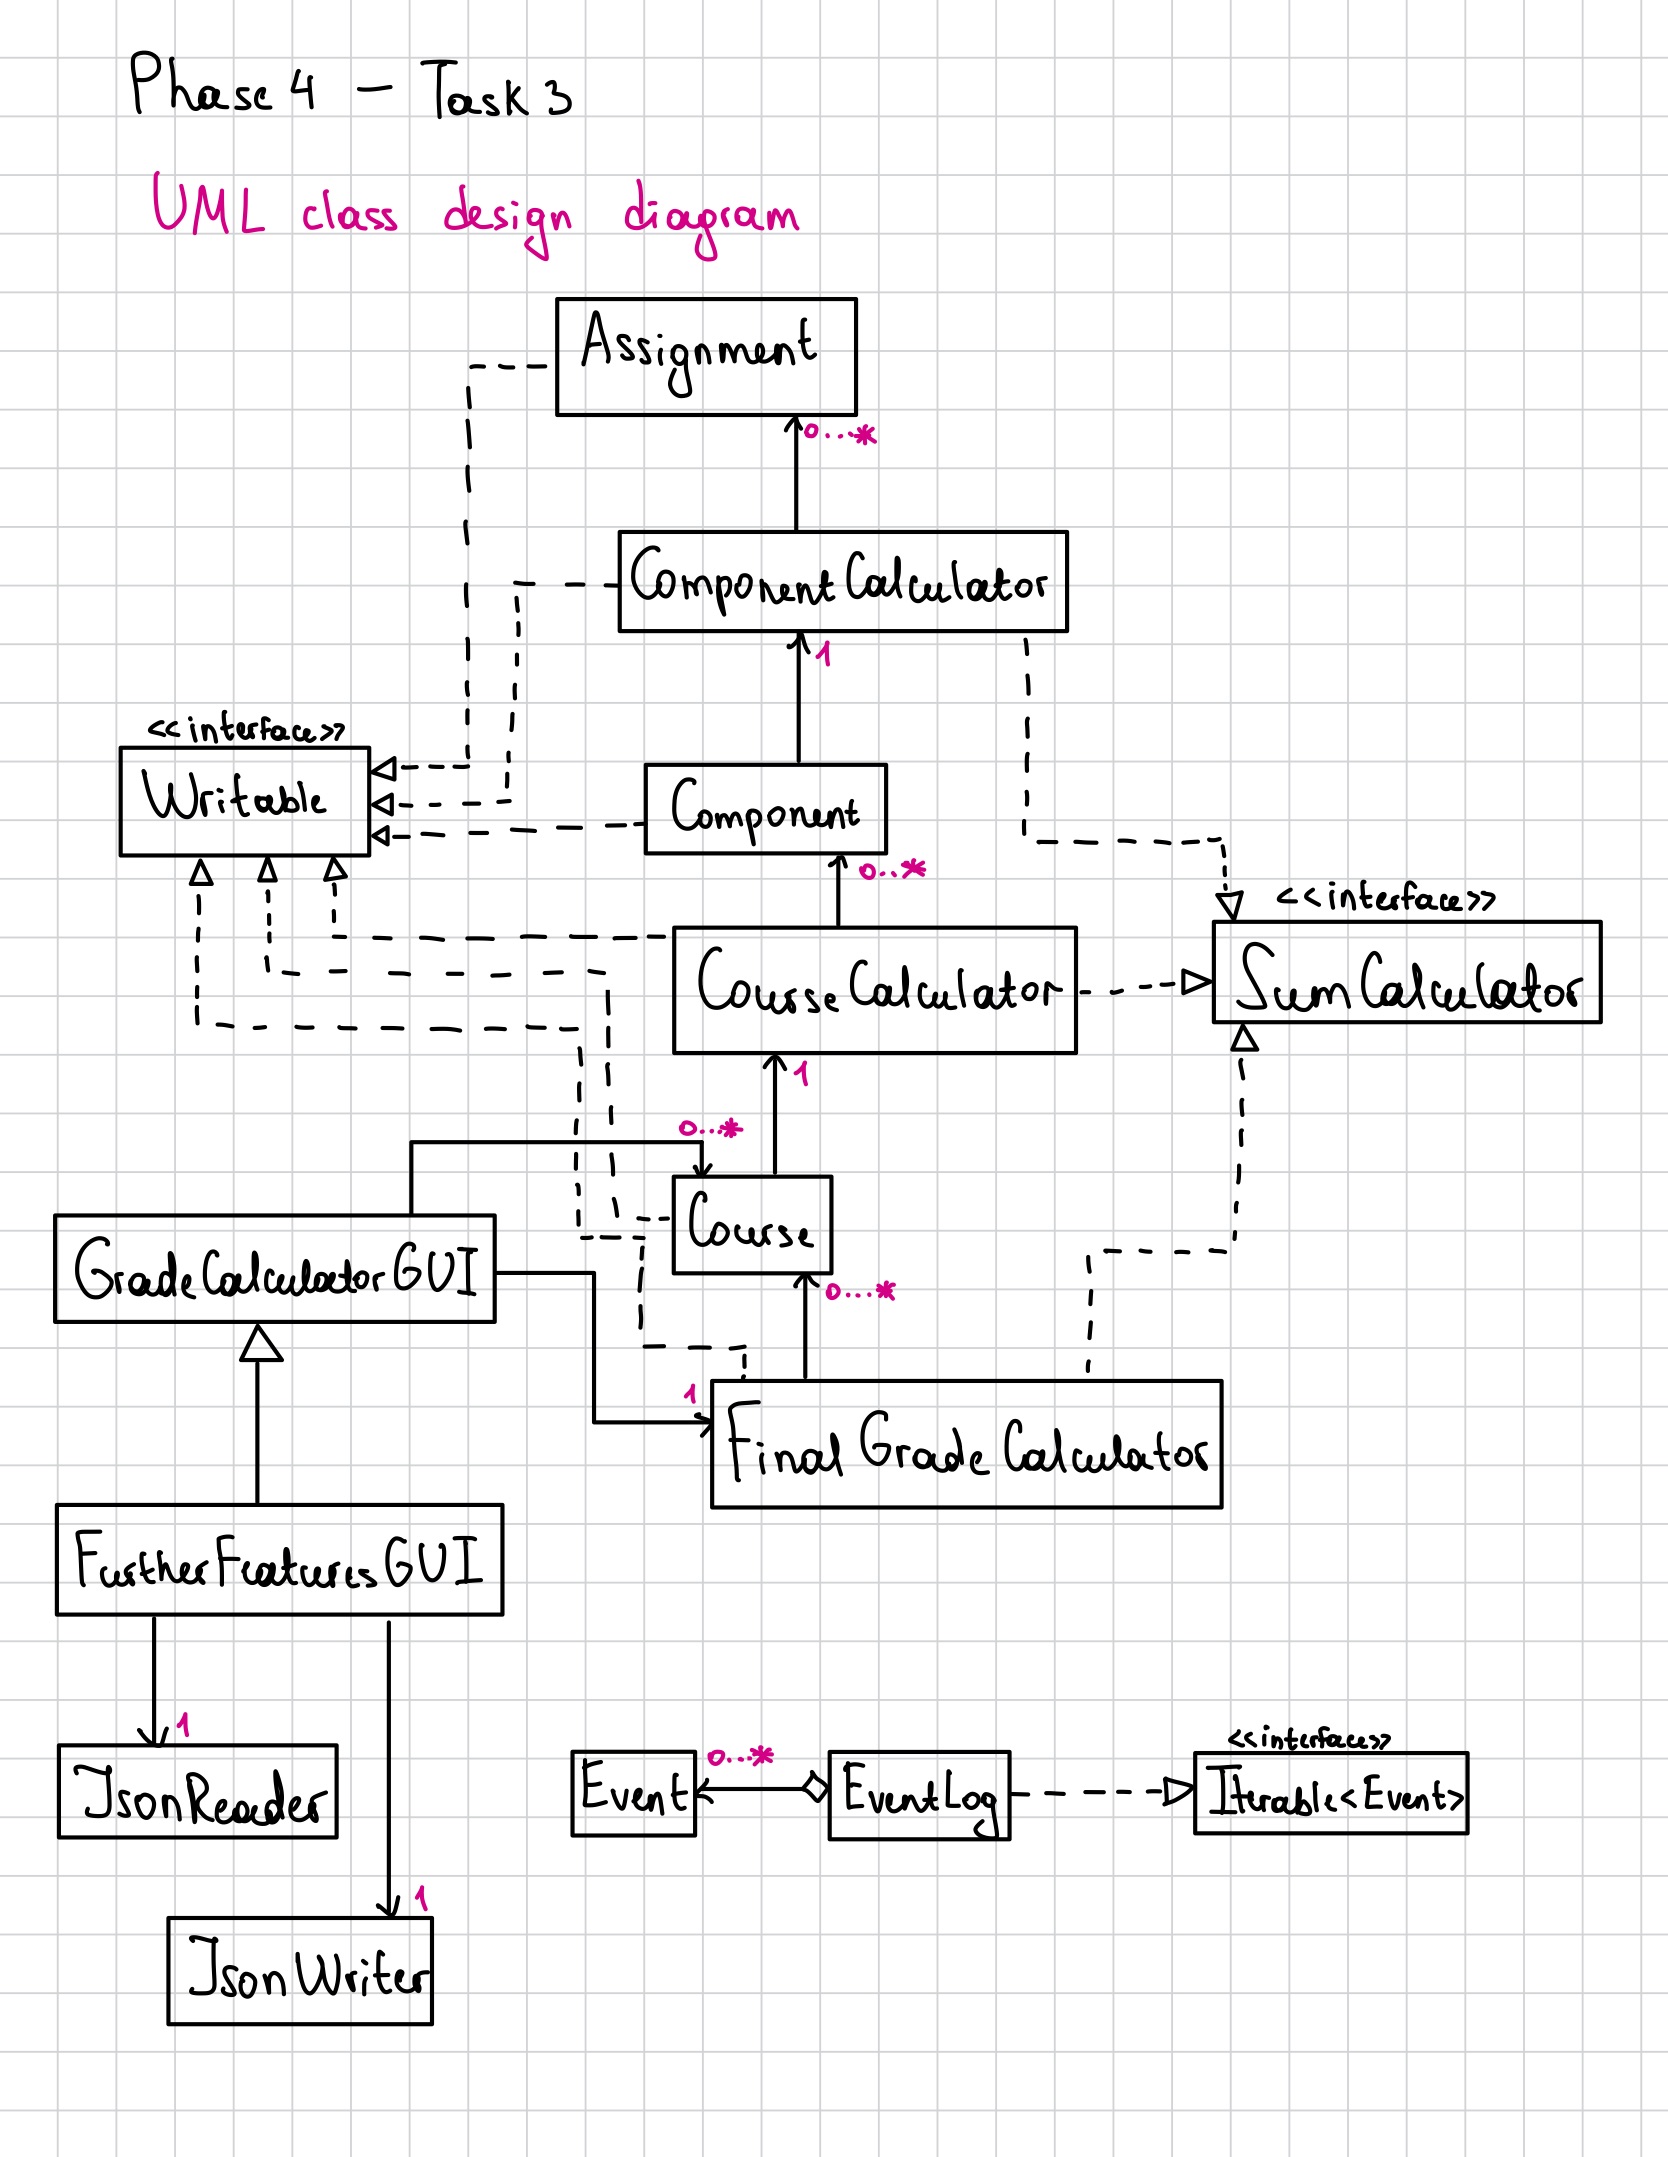 Phase 4 - Task 3
UML class design diagram
Assignment
0...*
ComponentCalculator
1
<<interface>>
Writable
Component
0...*
<<interface>>
CourseCalculator
SumCalculator
1
0...*
Course
GradeCalculatorGUI
0...*
1
FinalGradeCalculator
FurtherFeaturesGUI
1
JsonReader
<<interface>>
Event
0...*
EventLog
Iterable<Event>
1
JsonWriter